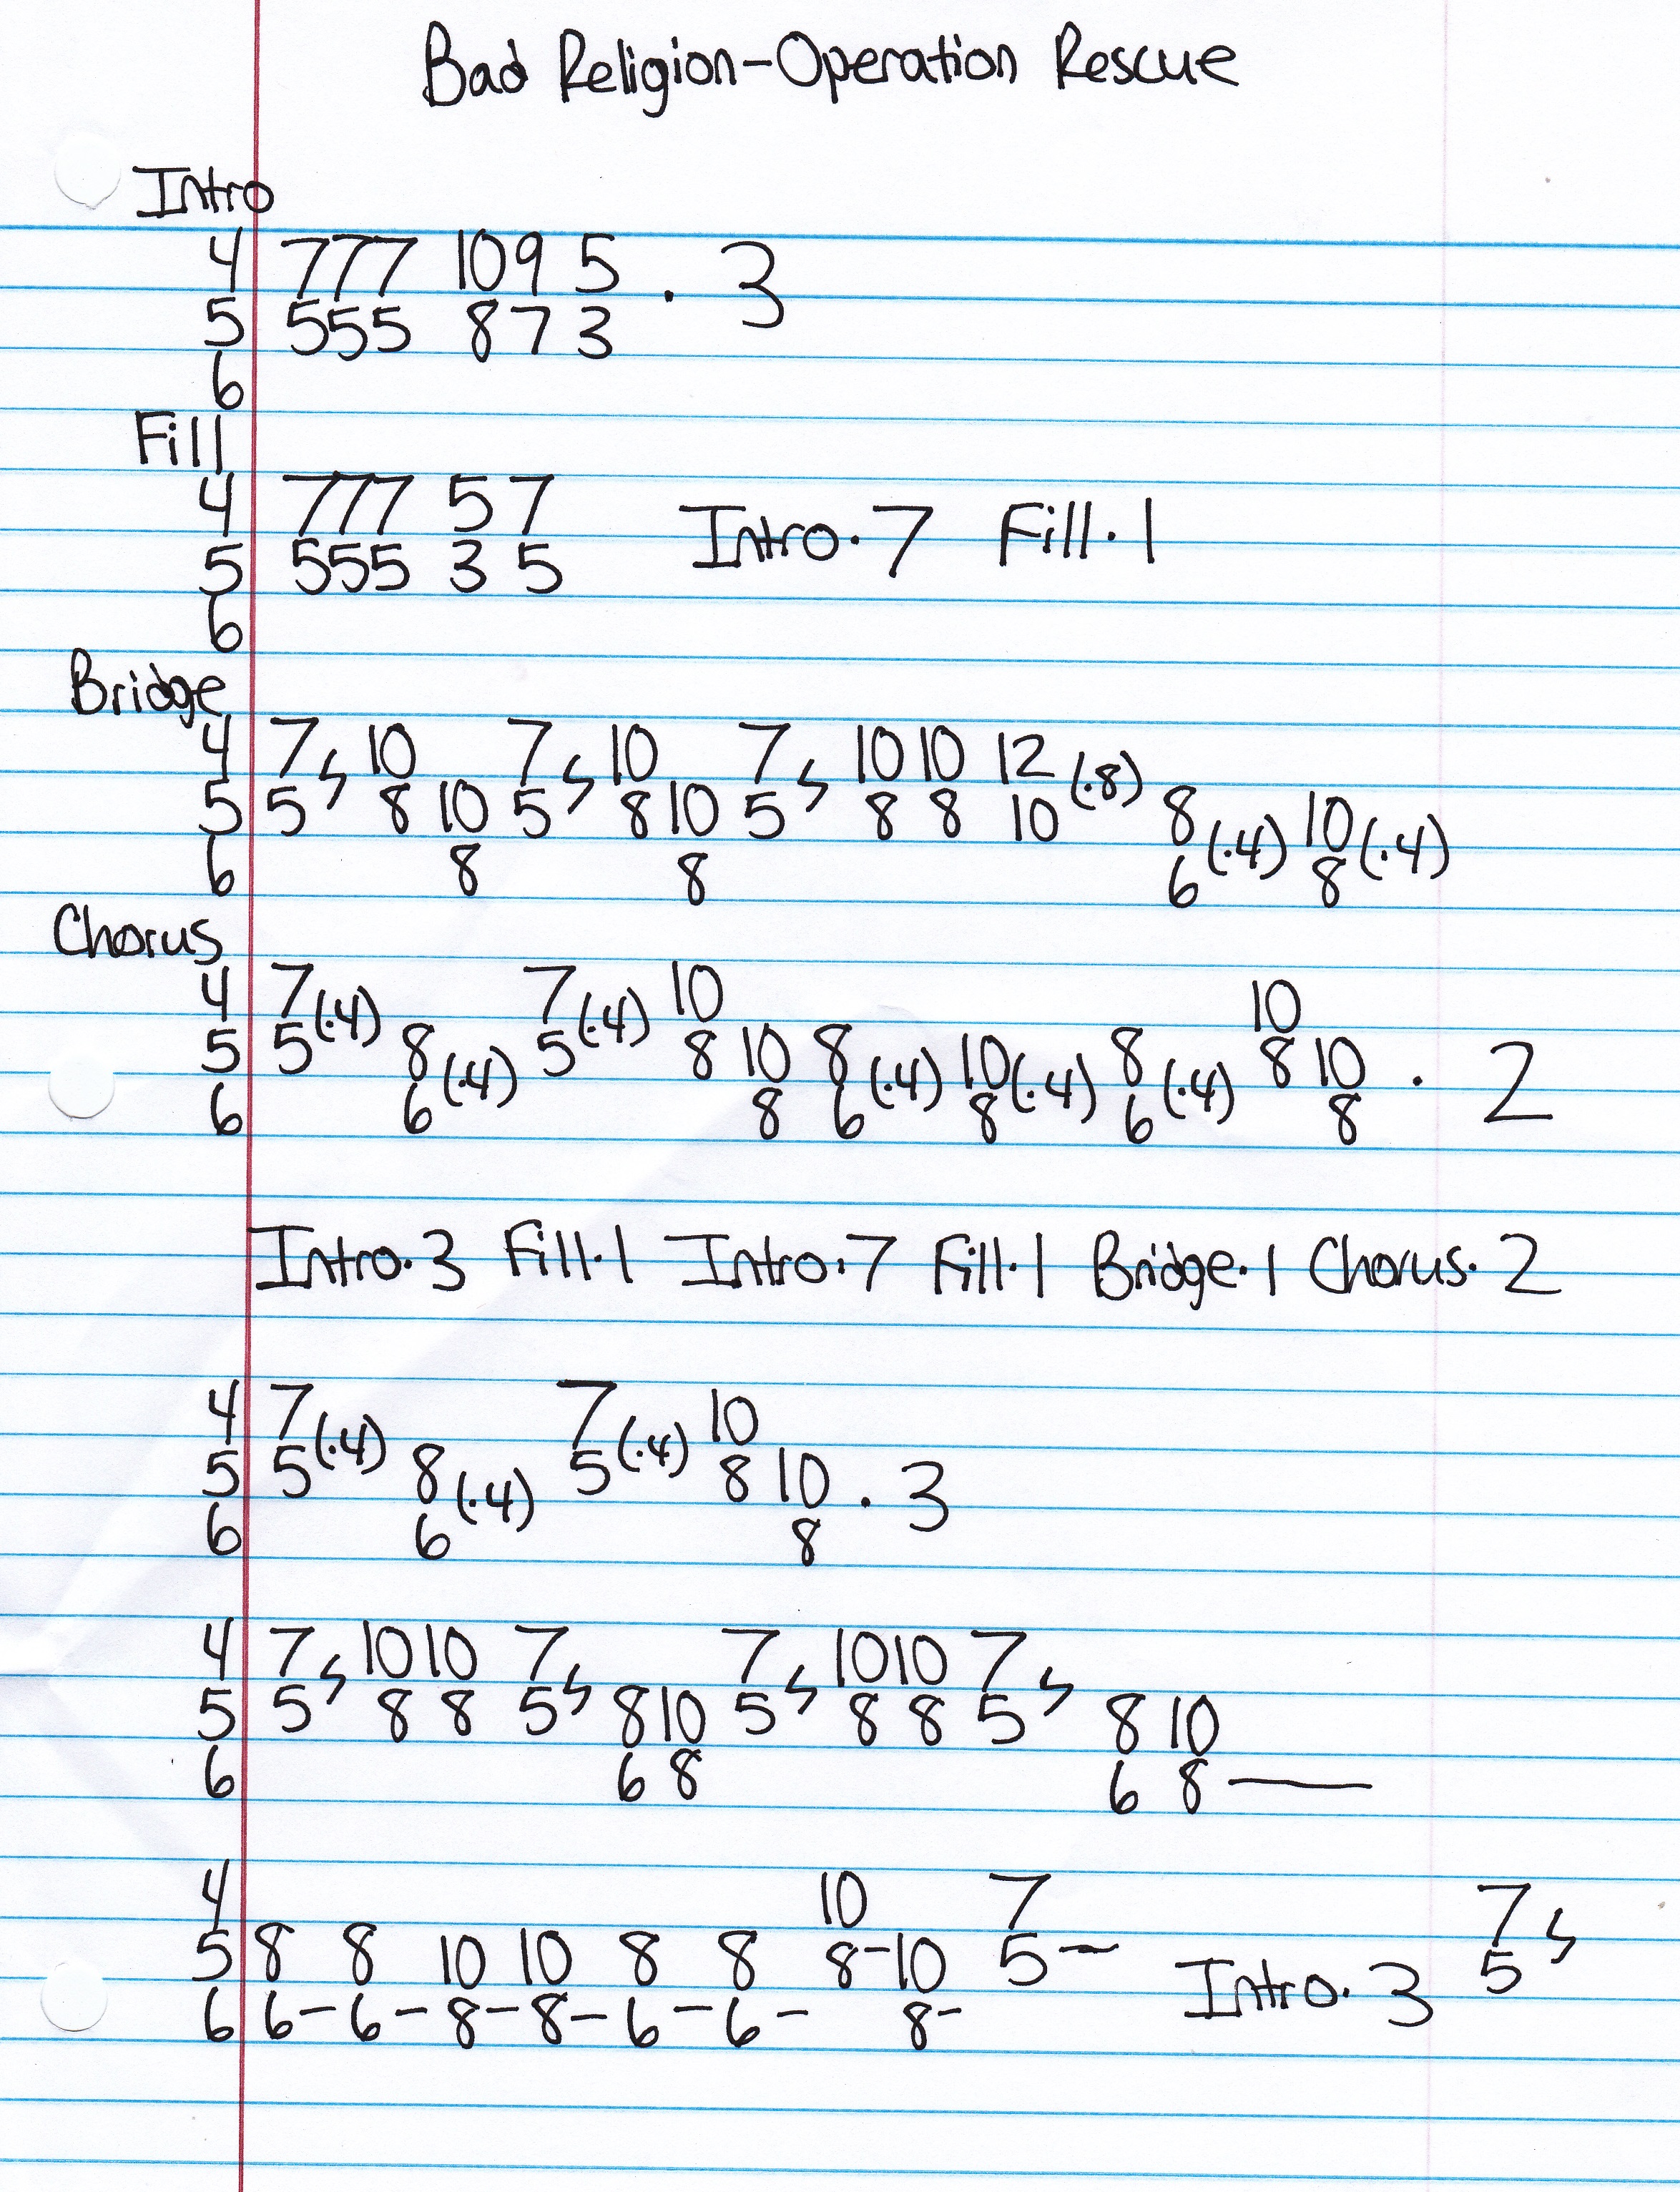 Bad Religion-Operation Rescue
Intro
4 777 109 5
5 555 8 7 3 · 3
6
Fill
4 777 5 7
5 555 3 5 Intro·7 Fill·1
6
Bridge
4 7 10 7 10 7 10 10 12 (·8)
5 5 8 10 5 8 10 5 8 8 10 8 (·4) 10 (·4)
6 8 8 6 8
Chorus
4 7 (·4) 7 (·4) 10 10
5 5 8 (·4) 5 8 10 8 (·4) 10 (·4) 8 (·4) 8 10 · 2
6 6 8 6 8 6 8
Intro·3 Fill·1 Intro·7 Fill·1 Bridge·1 Chorus·2
4 7 (·4) 7 (·4) 10
5 5 8 (·4) 5 8 10 · 3
6 6 8
4 7 10 10 7 7 10 10 7
5 5 8 8 5 8 10 5 8 8 5 8 10
6 6 8 6 8—
4 10 7 7
5 8 8 10 10 8 8 8-10 5- Intro·3 5
6 6-6-8-8-6-6- 8-